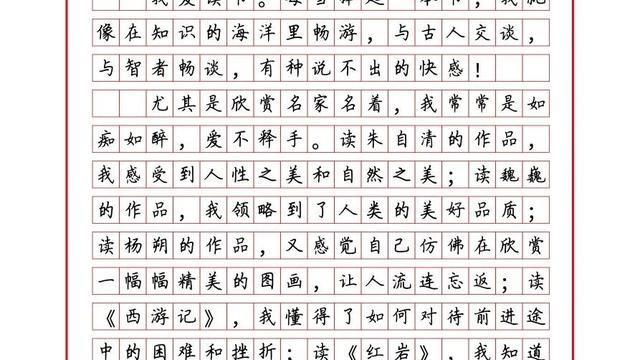 我爱读书。每当捧起一本书，我就
像在知识的海洋里畅游，与古人交谈，
与智者畅谈，有种说不出的快感！
尤其是欣赏名家名着，我常常是如
痴如醉，爱不释手。读朱自清的作品，
我感受到人性之美和自然之美；读魏巍
的作品，我领略到了人类的美好品质；
读杨朔的作品，又感觉自己仿佛在欣赏
一幅幅精美的图画，让人流连忘返；读
《西游记》，我懂得了如何对待前进途
中的困难和挫折；读《红岩》，我知道